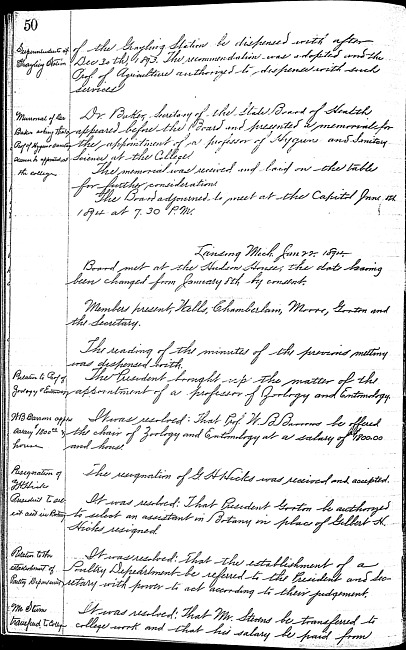 50
Superintendent of
Grayling Station
of the Grayling Station be dispensed with after
Dec 30th 1893. The recommendation was adopted and the
Prof. of Agriculture authorized to dispense with such
services
Memorial of Dr
Baker asking that a
Prof of Hygiene & sanitary
science be appointed at
the college
Dr. Baker, Secretary of the State Board of Health
appeared before the Board and presented a memorial for
the appointment of a professor of Hygiene and Sanitary
Science at the College
The memorial was received and laid on the table
for further consideration
The Board adjourned to meet at the Capitol Jan. 8th
1894 at 7.30 P.M.
Lansing Mich. Jan 22. 1894
Board met at the Hudson House, the date having
been changed from January 8th by consent.
Members present, Wells, Chamberlain, Moore, Gorton and
the Secretary.
The reading of the minutes of the previous meeting
was dispensed with.
Relation to Prof of
Zoology & Entomology
The President brought up the matter of the
appointment of a professor of Zoology and Entomology.
W B Barrows
salary $1800.00 &
house
It was resolved: That Prof. W. B. Barrows be offered
the chair of Zoology and Entomology at a salary of $1800.00
and house
Resignation of
G H Hicks
The resignation of G. H. Hicks was received and accepted.
President to sel-
ect asst in Botany
It was resolved: That President Gorton be authorized
to select an assistant in Botany in place of Gilbert H.
Hicks resigned
Relation to the
establishment of
Poultry Department
It was resolved: That the establishment of a
Poultry Department be referred to the President and Sec-
retary with power to act according to their judgement.
Mr Stevens
transferred to College
It was resolved: That Mr. Stevens be transferred to
college work and that his salary be paid from